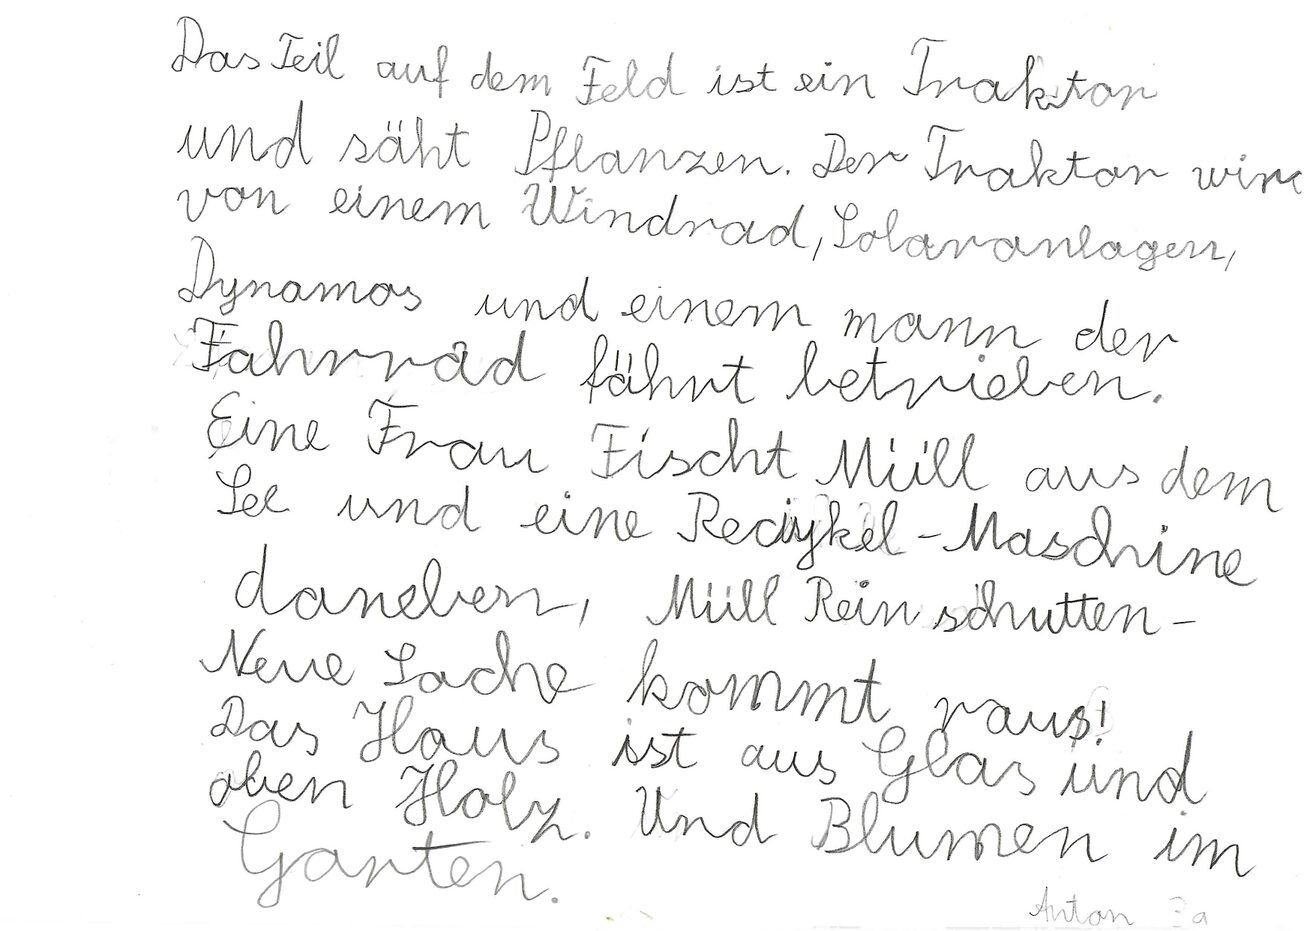 Das Teil auf dem Feld ist ein Traktor
und säht Pflanzen. Der Traktor wird
von einem Windrad, Solaranlagen,
Dynamos und einem mann der
Fahrrad fährt betrieben.
Eine Frau Fischt Müll aus dem
See und eine Recykel-Maschine
daneben, Müll Rein schutten-
Neue Sache kommt raus!
Das Haus ist aus Glas und
oben Holz. Und Blumen im
Garten.
Anton